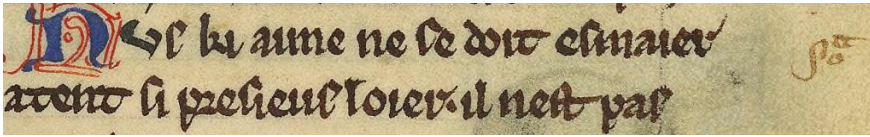 Nus ki aime ne se doit esmaier
atent si presieus loier. il nest pas